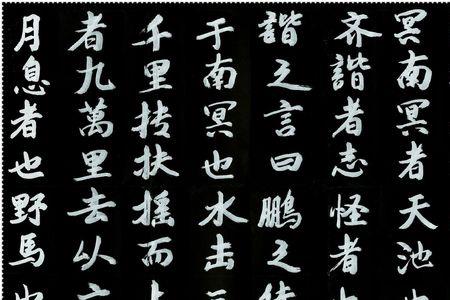 冥南冥者天池
齐諧者志怪者
諧之言曰鵬之
于南冥也水击
千里抟扶摇而
者九萬里去以
月息者也野馬